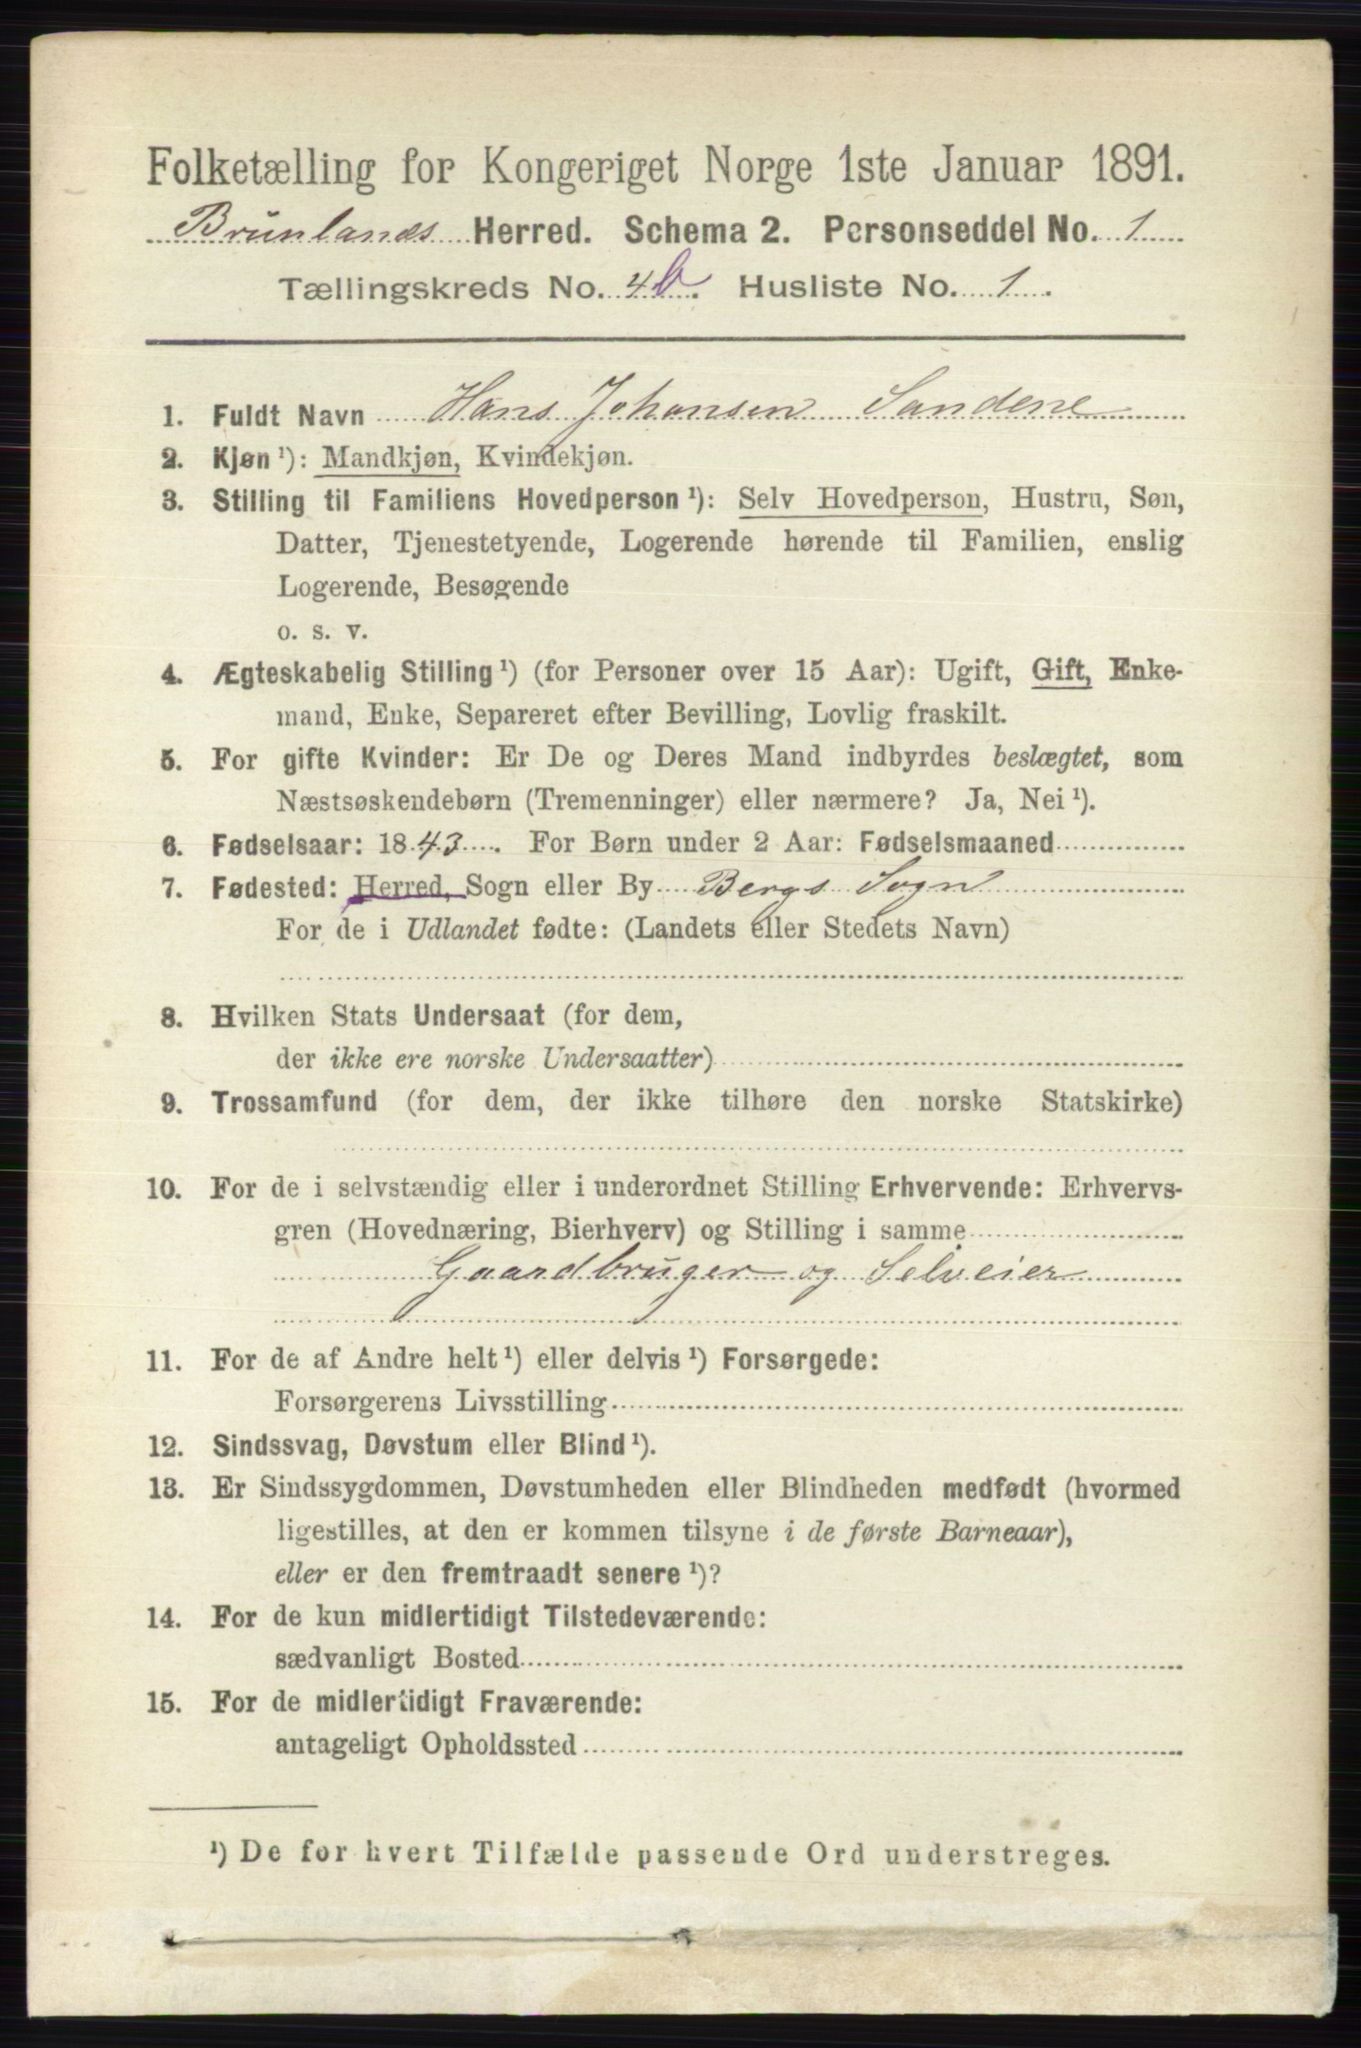 Folketælling for Kongeriget Norge 1ste Januar 1891.
Brunlands Herred. Schema 2. Personseddel No. 1
Tællingskreds No. 4b. Husliste No. 1.
1. Fuldt Navn Hans Johansen Sandene
2. Kjøn ¹): Mandkjøn, Kvindekjøn.
3. Stilling til Familiens Hovedperson ¹): Selv Hovedperson, Hustru, Søn,
Datter, Tjenestetyende, Logerende hørende til Familien, enslig
Logerende, Besøgende
o. s. v.
4. Ægteskabelig Stilling ¹) (for Personer over 15 Aar): Ugift, Gift, Enke-
mand, Enke, Separeret efter Bevilling, Lovlig fraskilt.
5. For gifte Kvinder: Er De og Deres Mand indbyrdes beslægtet, som
Næstsøskendebørn (Tremenninger) eller nærmere? Ja, Nei ¹).
6. Fødselsaar: 1843. For Børn under 2 Aar: Fødselsmaaned
7. Fødested: Herred, Sogn eller By Bergs Sogn
For de i Udlandet fødte: (Landets eller Stedets Navn)
8. Hvilken Stats Undersaat (for dem,
der ikke ere norske Undersaatter)
9. Trossamfund (for dem, der ikke tilhøre den norske Statskirke)
10. For de i selvstændig eller i underordnet Stilling Erhvervende: Erhvervs-
gren (Hovednæring, Bierhverv) og Stilling i samme
Gaardbruger og Selveier
11. For de af Andre helt ¹) eller delvis ¹) Forsørgede:
Forsørgerens Livsstilling
12. Sindssvag, Døvstum eller Blind ¹).
13. Er Sindssygdommen, Døvstumheden eller Blindheden medfødt (hvormed
ligestilles, at den er kommen tilsyne i de første Barneaar),
eller er den fremtraadt senere ¹)?
14. For de kun midlertidigt Tilstedeværende:
sædvanligt Bosted
15. For de midlertidigt Fraværende:
antageligt Opholdssted
¹) De for hvert Tilfælde passende Ord understreges.